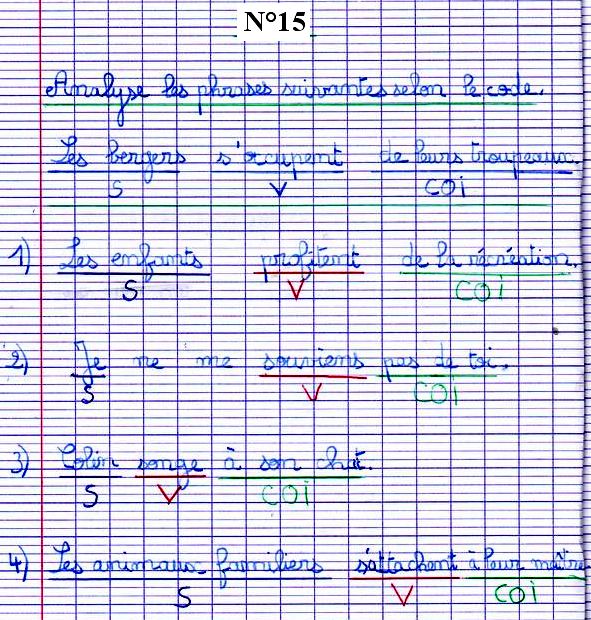 N°15
Analyse les phrases suivantes selon le code.
Les bergers s'occupent de leurs troupeaux.
S V COI
1) Les enfants profitent de la récréation.
S V COI
2) Je ne me souviens pas de toi.
S V COI
3) Colin songe à son chat.
S V COI
4) Les animaux familiers s'attachent à leur maître
S V COI